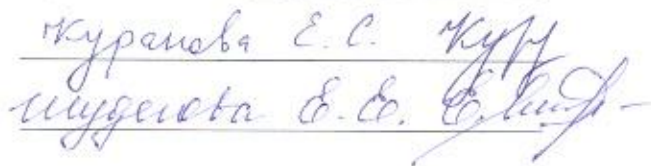 Куранова Е. С.
Шудегова Е. Е.